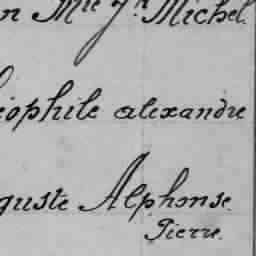 n Mie Jn Michel.
éophile alexandre
guste Alphonse.
Pierre.